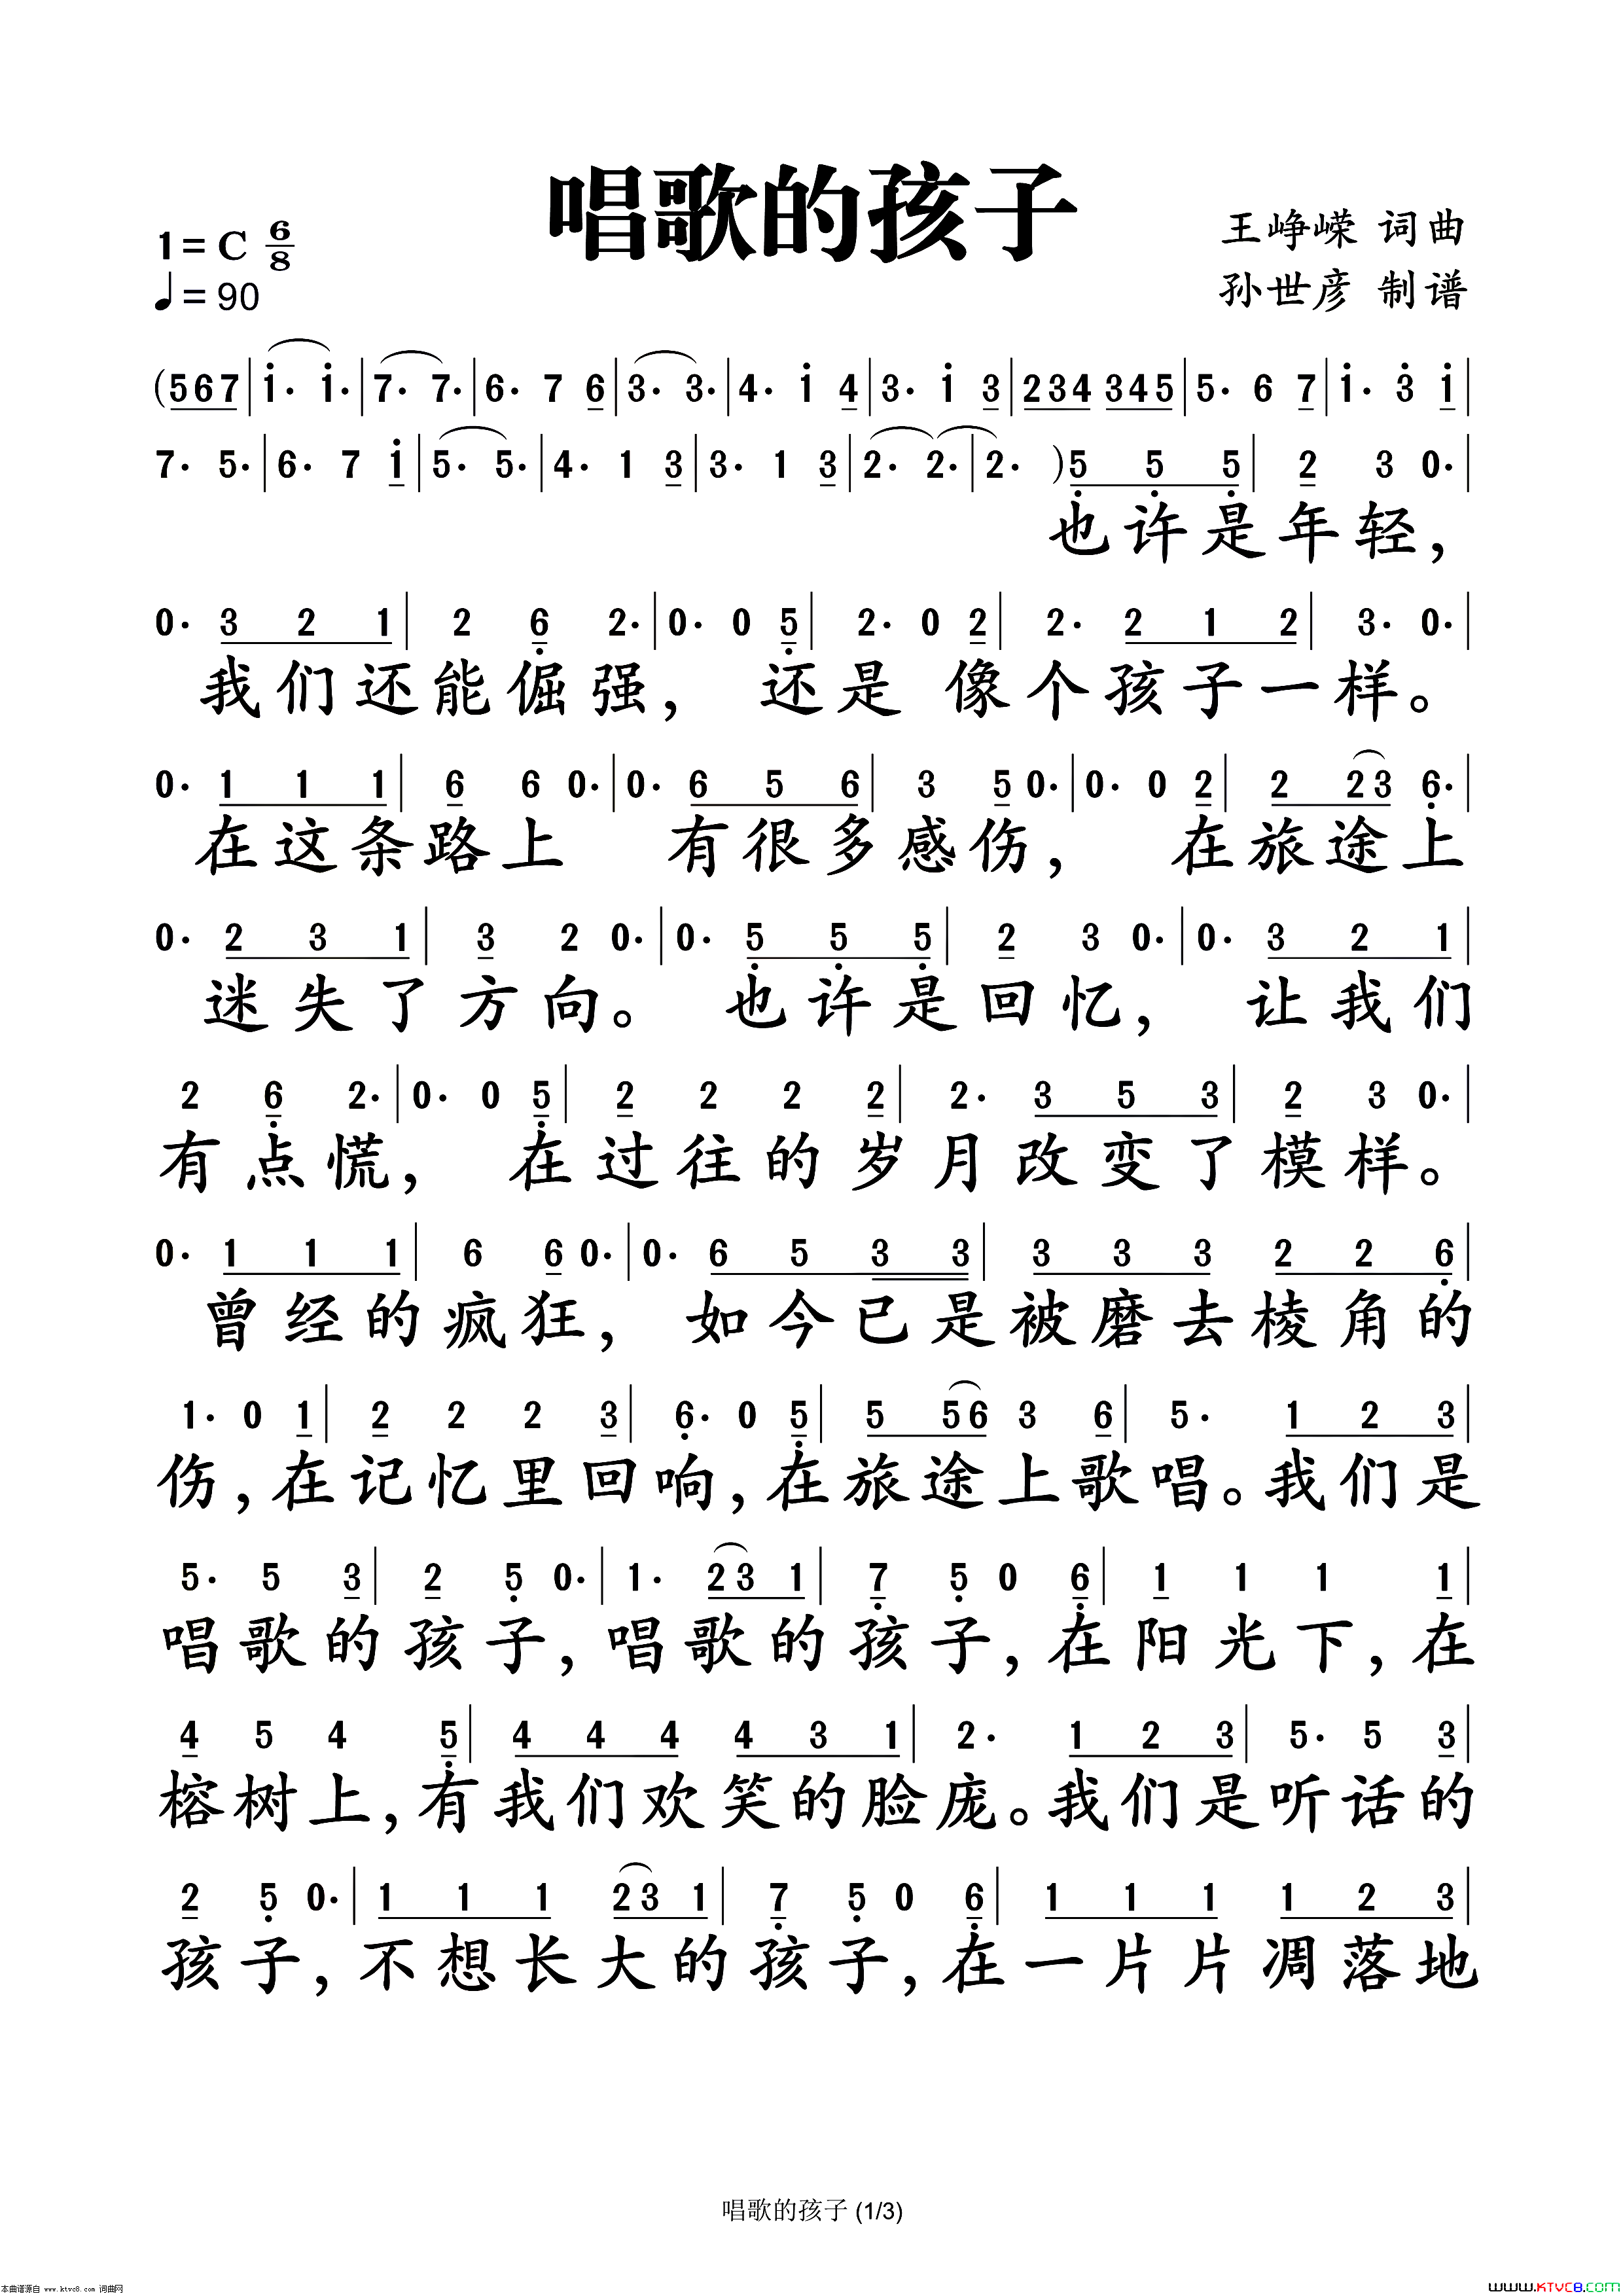 唱歌的孩子
1=C 6/8
王峥嵘 词曲
♩=90
孙世彦 制谱
(5 6 7 | i· i· | 7· 7· | 6· 7 6 | 3· 3· | 4· i 4 | 3· i 3 | 2 3 4 3 4 5 | 5· 6 7 | i· 3 i |
7· 5· | 6· 7 i | 5· 5· | 4· 1 3 | 3· 1 3 | 2· 2· | 2· ) 5 5 5 | 2 3 0· |
也许是年轻，
0· 3 2 1 | 2 6 2· | 0· 0 5 | 2· 0 2 | 2· 2 1 2 | 3· 0· |
我们还能倔强， 还是 像个孩子一样。
0· 1 1 1 | 6 6 0· | 0· 6 5 6 | 3 5 0· | 0· 0 2 | 2 2 3 6· |
在这条路上 有很多感伤， 在旅途上
0· 2 3 1 | 3 2 0· | 0· 5 5 5 | 2 3 0· | 0· 3 2 1 |
迷失了方向。 也许是回忆， 让我们
2 6 2· | 0· 0 5 | 2 2 2 2 | 2· 3 5 3 | 2 3 0· |
有点慌， 在过往的岁月改变了模样。
0· 1 1 1 | 6 6 0· | 0· 6 5 3 3 | 3 3 3 2 2 6 |
曾经的疯狂， 如今已是被磨去棱角的
1· 0 1 | 2 2 2 3 | 6· 0 5 | 5 5 6 3 6 | 5· 1 2 3 |
伤，在记忆里回响，在旅途上歌唱。我们是
5· 5 3 | 2 5 0· | 1· 2 3 1 | 7 5 0 6 | 1 1 1 1 |
唱歌的孩子，唱歌的孩子，在阳光下，在
4 5 4 5 | 4 4 4 4 3 1 | 2· 1 2 3 | 5· 5 3 |
榕树上，有我们欢笑的脸庞。我们是听话的
2 5 0· | 1 1 1 2 3 1 | 7 5 0 6 | 1 1 1 1 2 3 |
孩子，不想长大的孩子，在一片片凋落地
唱歌的孩子 (1/3)
本曲谱源自 www.ktvc8.com 词曲网
WWW.KTVC8.COM